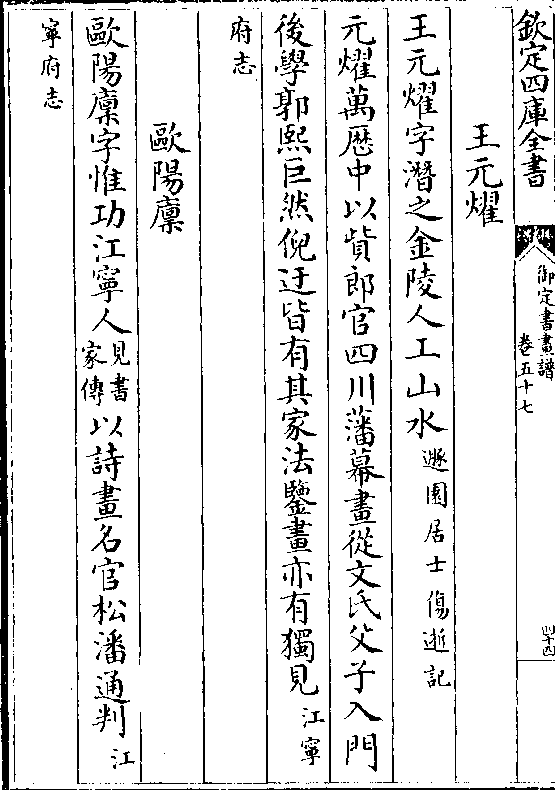 欽定四庫全書
御定書畫譜
卷五十七
四十四
王元燿
王元燿字潛之金陵人工山水遯園居士傷逝記
元燿萬厯中以貲郎官四川藩幕畫從文氏父子入門
後學郭熙巨然倪迂皆有其家法鑒畫亦有獨見江寧
府志
歐陽廩
歐陽廩字惟功江寧人見書家傳以詩畫名官松潘通判江
寧府志